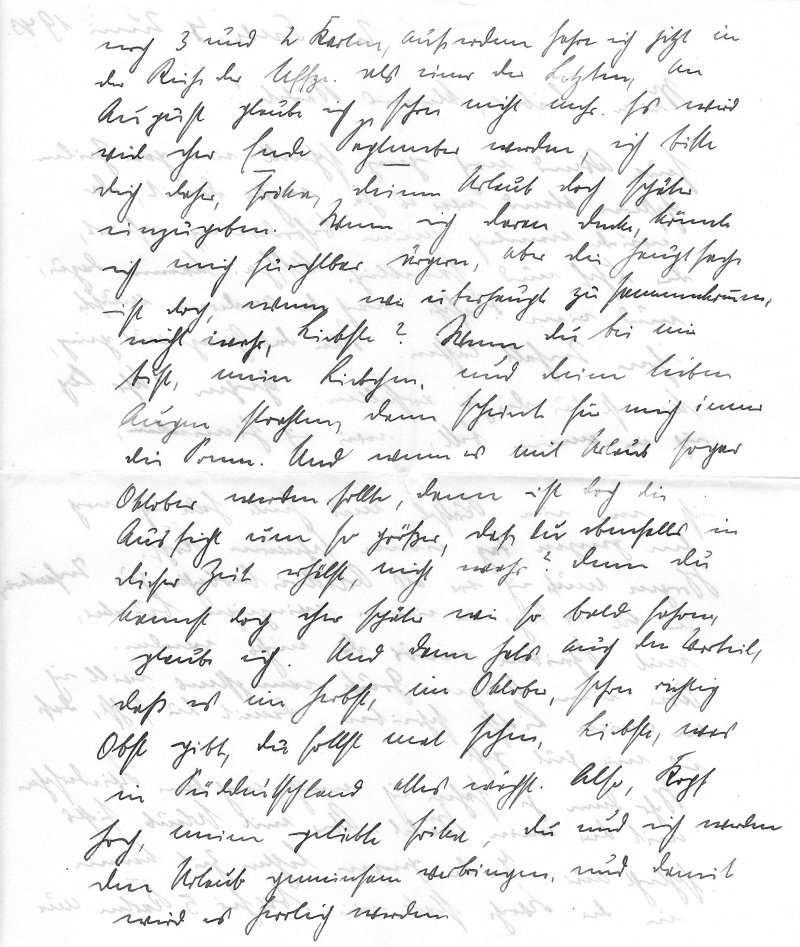 noch 3 und 2 Karten, außerdem fahre ich jetzt in
der Reihe der Uffze. als einer der Letzten, an
August glaube ich schon nicht mehr. Es wird
viel eher Ende September werden, ich bitte
dich daher, Erika, deinen Urlaub doch später
einzugeben. Wenn ich daran denke, könnte
ich mich furchtbar ärgern, aber die Hauptsache
ist doch, wenn wir überhaupt zusammenkommen,
nicht wahr, Liebste? Wenn du bei mir
bist, mein Liebchen, und deine lieben
Augen strahlen, dann scheint für mich immer
die Sonne. Und wenn es mit Urlaub sogar
Oktober werden sollte, dann ist doch die
Aussicht um so größer, daß du ebenfalls in
dieser Zeit erhälst, nicht wahr? denn du
kannst doch eher später wie so bald fahren,
glaube ich. Und dann hats auch den Vorteil,
daß es im Herbst, im Oktober, schon richtig
Obst gibt, du sollst mal sehen, Liebste, was
in Süddeutschland alles wächst. Also, Kopf
hoch, meine geliebte Erika, du und ich werden
den Urlaub gemeinsam verbringen, und damit
wird es herrlich werden